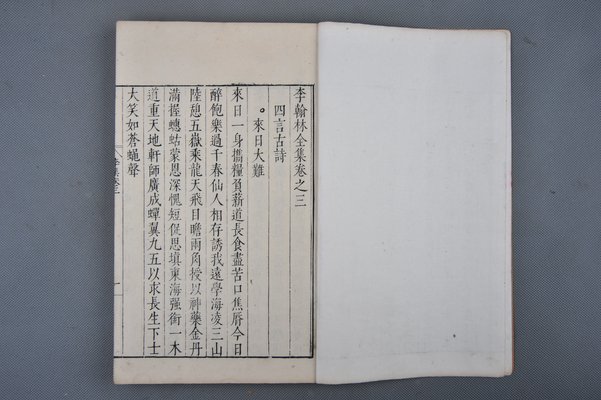 李翰林全集卷之三
四言古詩
來日大難
來日一身攜糧負薪道長食盡苦口焦脣今日
醉飽樂過千春仙人相存誘我遠學海凌三山
陸憩五嶽乘龍天飛目瞻兩角授以神藥金丹
滿握蟪蛄蒙恩深愧短促思填東海强銜一木
道重天地軒師廣成蟬翼九五以求長生下士
大笑如蒼蠅聲